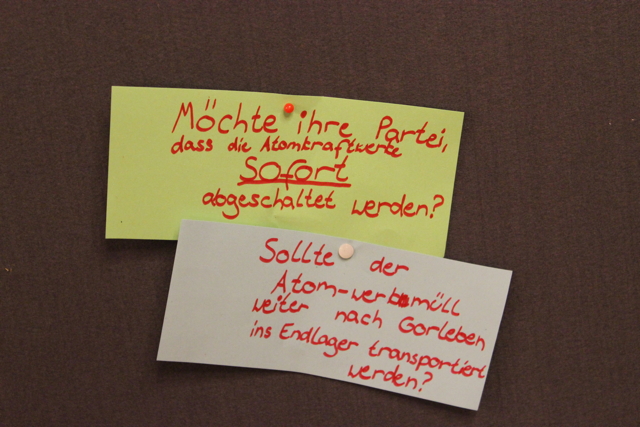 Möchte ihre Partei,
dass die Atomkraftwerke
Sofort
abgeschaltet werden?
Sollte der
Atom-werksmüll
weiter nach Gorleben
ins Endlager transportiert
werden?